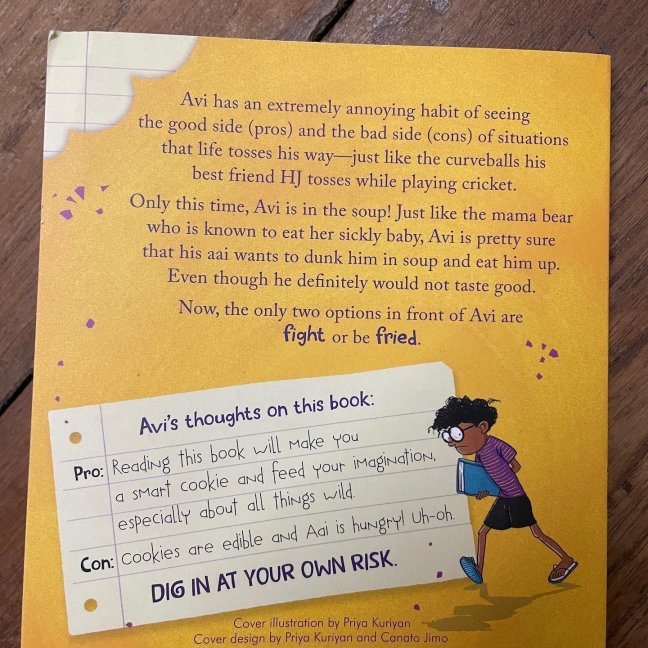 Avi has an extremely annoying habit of seeing
the good side (pros) and the bad side (cons) of situations
that life tosses his way—just like the curveballs his
best friend HJ tosses while playing cricket.
Only this time, Avi is in the soup! Just like the mama bear
who is known to eat her sickly baby, Avi is pretty sure
that his aai wants to dunk him in soup and eat him up.
Even though he definitely would not taste good.
Now, the only two options in front of Avi are
fight or be fried.
Avi's thoughts on this book:
Pro: Reading this book will make you
a smart cookie and feed your imagination,
especially about all things wild.
Con: Cookies are edible and Aai is hungry! Uh-oh.
DIG IN AT YOUR OWN RISK.
Cover illustration by Priya Kuriyan
Cover design by Priya Kuriyan and Canato Jimo